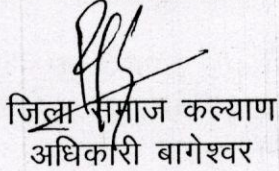 जिला समाज कल्याण
अधिकारी बागेश्वर